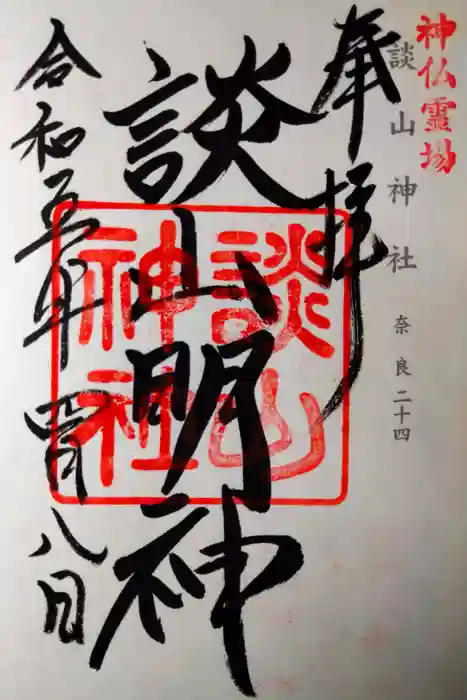 神仏霊場
談山神社 奈良二十四
奉拝
談山明神
談山神社
令和五年四月八日